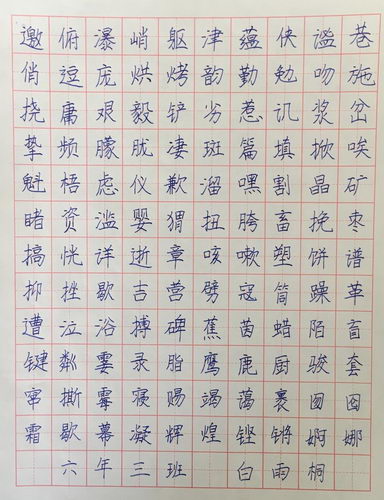 邀俯瀑峭躯津蕴侠谧巷
俏逗庞烘烤韵勤勉吻施
挠庸艰毅铲劣惹讥浆岔
挚频朦胧凄斑篇填掀唉
魁梧虑仪歉溜嘿割晶矿
睹资滥婴猬扭胯畜挽枣
搞恍详逝章咳嗽塑饼谱
抑挫歇吉营劈寇筒躁革
遭泣浴搏碑蕉茵蜡陌盲
键粼霎录脂鹰鹿厨骏套
窜撕霉寝赐竭蔼裹囡囫
霜歇幕凝辉煌铿锵婀娜
六年三班 白雨桐